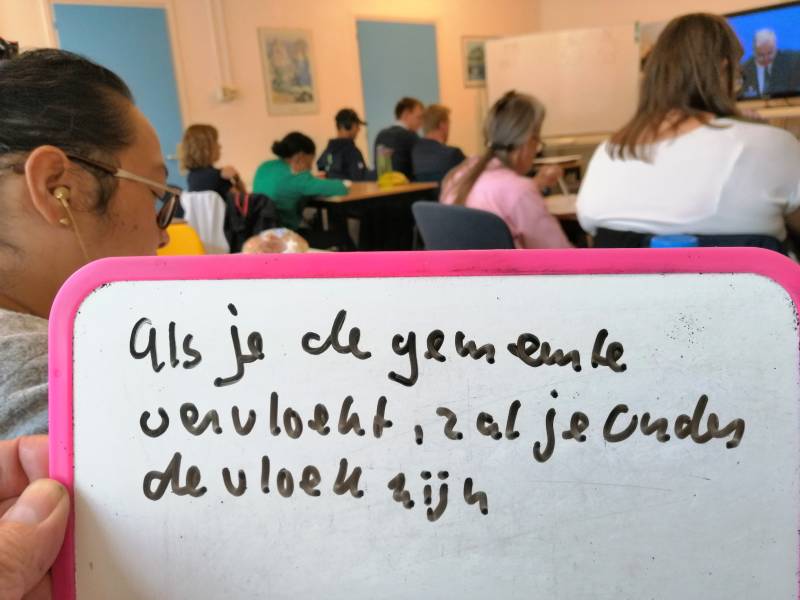 Als je de gemeente
vervloekt, zal je onder
de vloek zijn